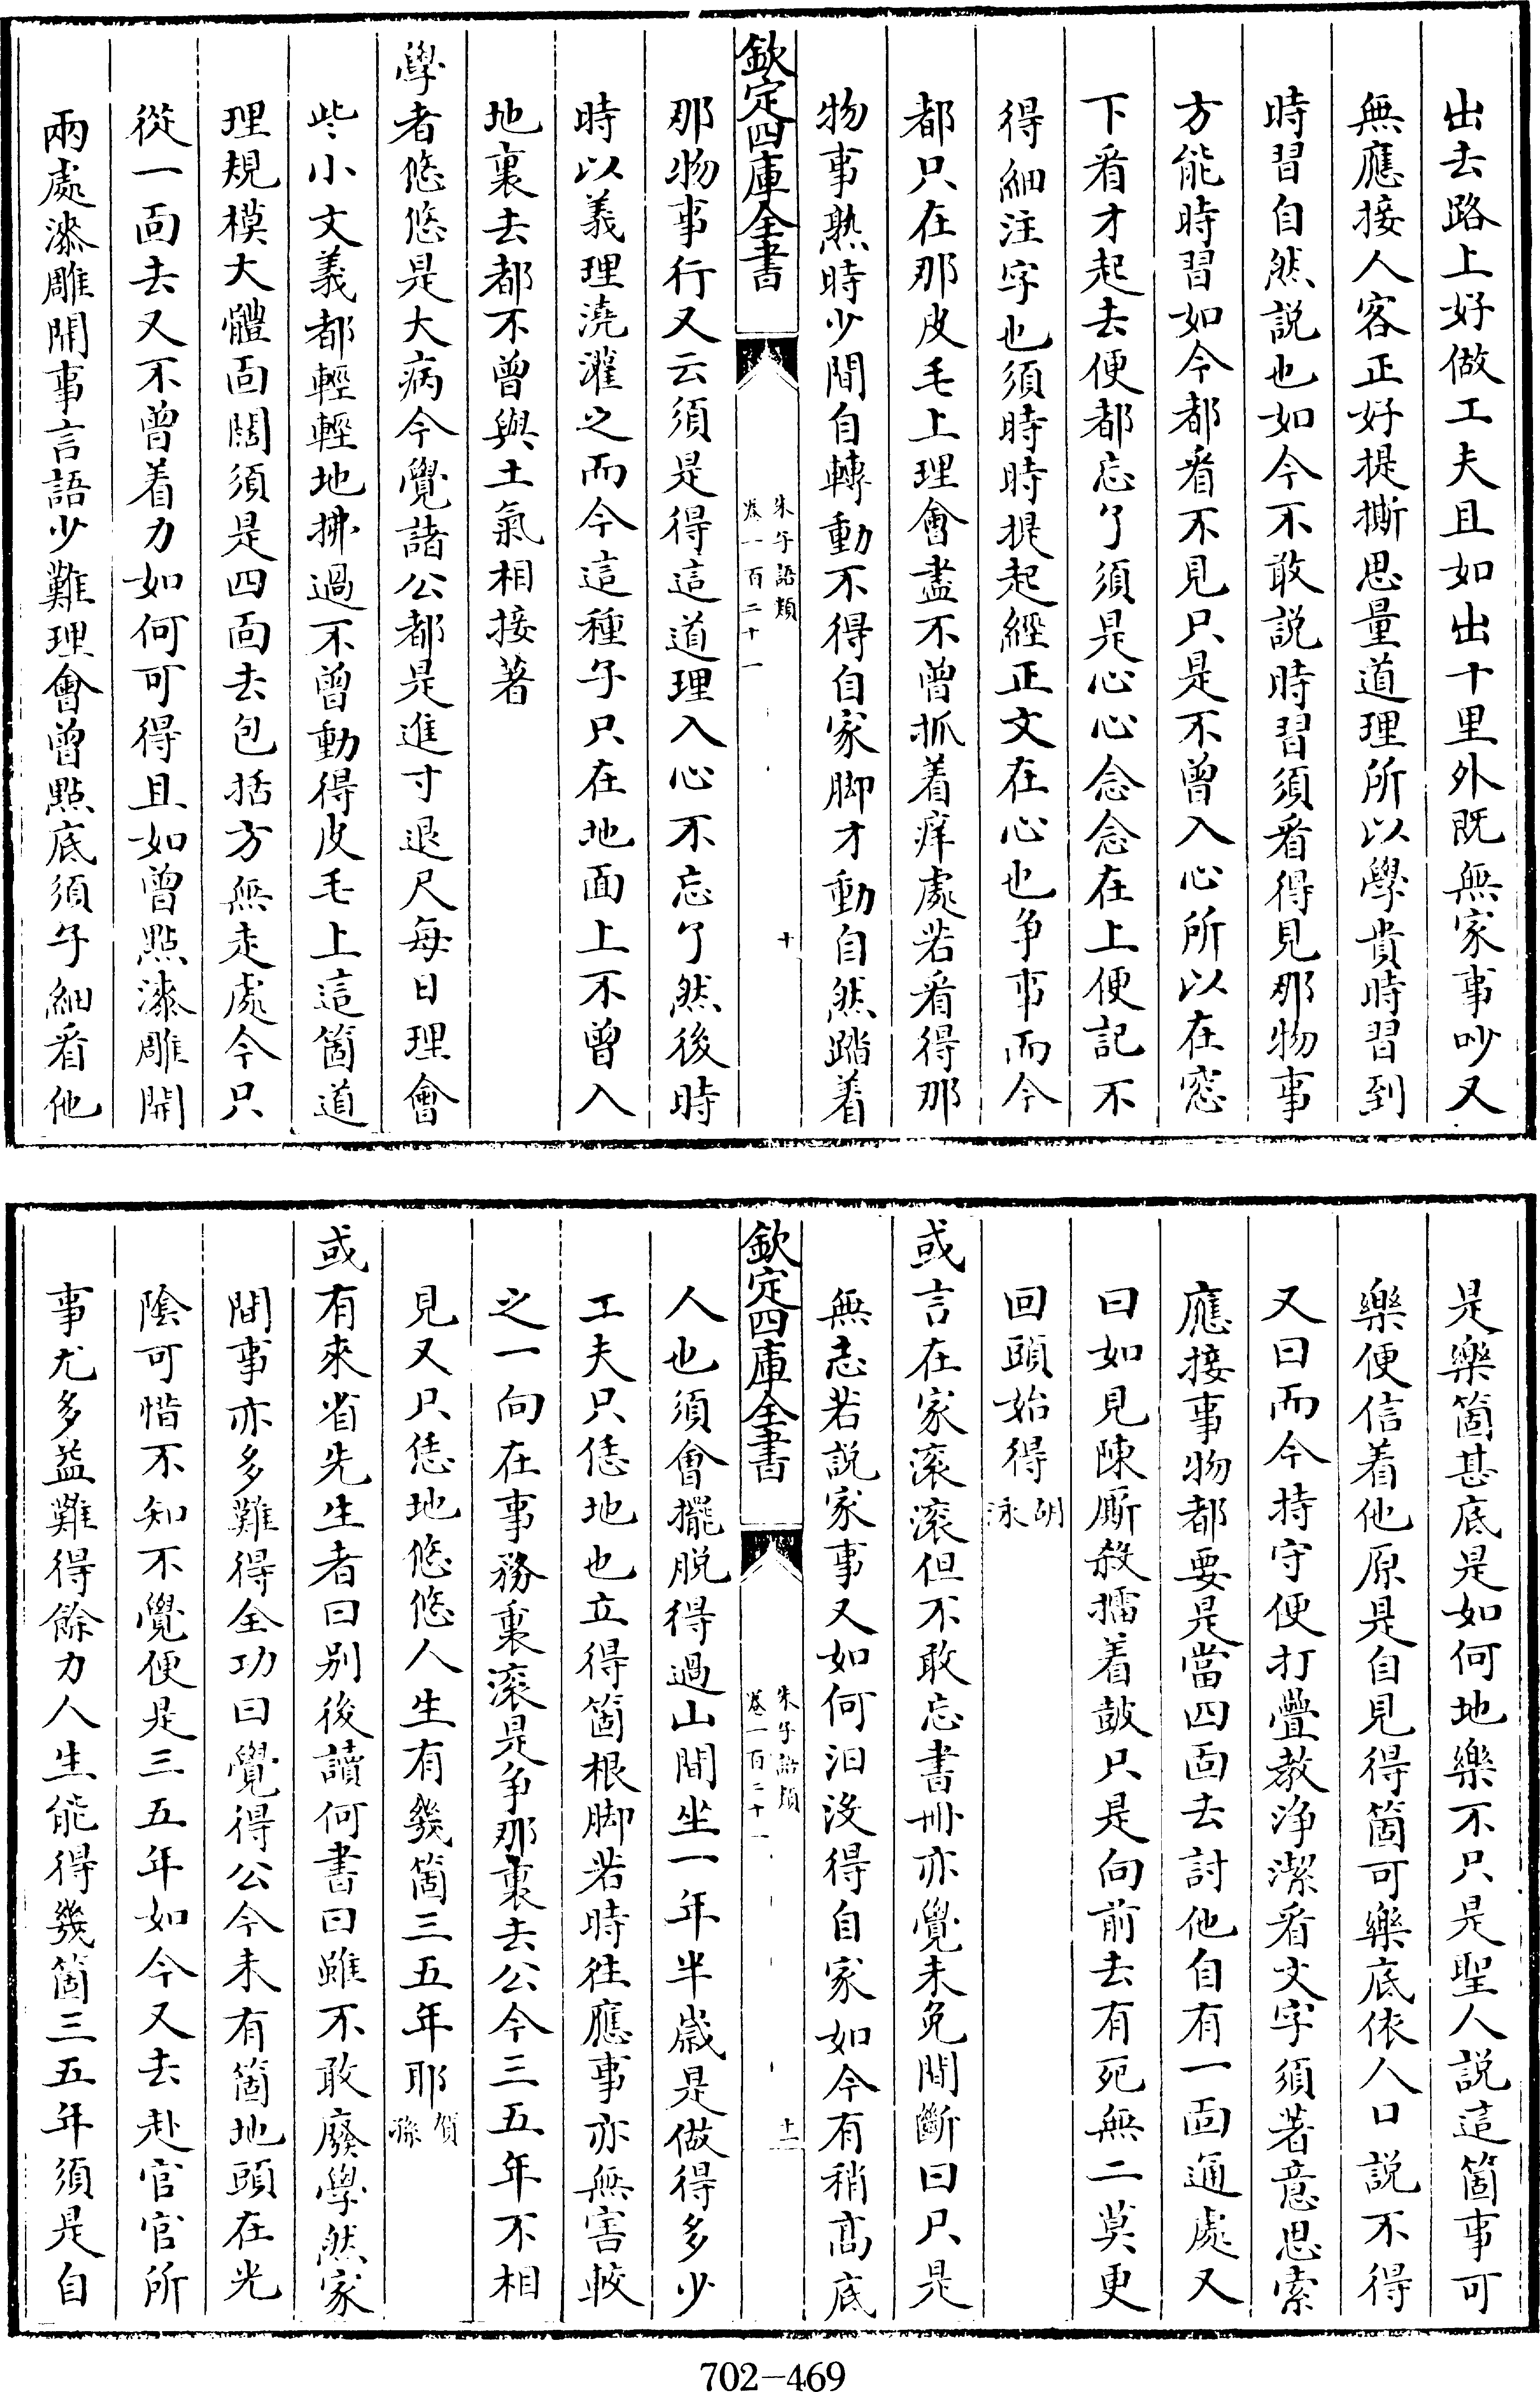 出去路上好做工夫且如出十里外既無家事吵又
無應接人客正好提撕思量道理所以學貴時習到
時習自然説也如今不敢説時習須㸔得見那物事
方能時習如今都㸔不見只是不曾入心所以在窓
下㸔才起去便都忘了須是心心念念在上便記不
得細注字也須時時提起經正文在心也争事而今
都只在那皮毛上理㑹盡不曾抓着痒處若㸔得那
物事熟時少間自轉動不得自家脚才動自然踏着
欽定四庫全書
朱子語類
卷一百二十一
十
那物事行又云須是得這道理入心不忘了然後時
時以義理澆灌之而今這種子只在地面上不曾入
地裏去都不曾與土氣相接著
學者悠悠是大病今覺諸公都是進寸退尺每日理㑹
些小文義都輕輕地拂過不曾動得皮毛上這箇道
理規模大體面闊須是四面去包括方無走處今只
從一面去又不曾着力如何可得且如曾㸃漆雕開
兩處漆雕開事言語少難理㑹曾㸃底須子細㸔他
是樂箇甚底是如何地樂不只是聖人説這箇事可
樂便信着他原是自見得箇可樂底依人口説不得
又曰而今持守便打疊教淨潔㸔文字須著意思索
應接事物都要是當四面去討他自有一面通處又
曰如見陳厮殺擂着鼓只是向前去有死無二莫更
回頭始得胡泳
或言在家滚滚但不敢忘書冊亦覺未免間斷曰只是
無志若説家事又如何汩沒得自家如今有稍髙底
欽定四庫全書
朱子語類
卷一百二十一
十一
人也須㑹擺脱得過山間坐一年半歲是做得多少
工夫只恁地也立得箇根脚若時往應事亦無害較
之一向在事務裏滚是争那裏去公今三五年不相
見又只恁地悠悠人生有幾箇三五年耶賀孫
或有來省先生者曰别後讀何書曰雖不敢廢學然家
間事亦多難得全功曰覺得公今未有箇地頭在光
隂可惜不知不覺便是三五年如今又去赴官官所
事尤多益難得餘力人生能得幾箇三五年須是自
702-469